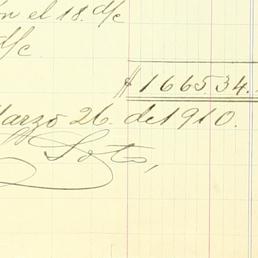 on el 18. d/c
d/c.
$ 1665.34.
Marzo 26. de 1910.
Soto,